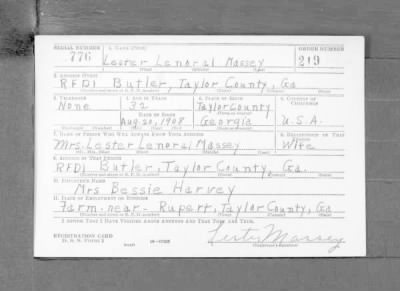 SERIAL NUMBER 1. NAME (Print) ORDER NUMBER
776 Lester Lenoral Massey 219
(First) (Middle) (Last)
2. ADDRESS (Print)
RFD1 Butler, Taylor County, Ga
3. TELEPHONE 4. AGE IN YEARS 5. PLACE OF BIRTH 6. COUNTRY OF CITIZENSHIP
None 32 Taylor County
DATE OF BIRTH
Aug 20, 1908 Georgia U.S.A.
7. NAME OF PERSON WHO WILL ALWAYS KNOW YOUR ADDRESS 8. RELATIONSHIP OF THAT PERSON
Mrs. Lester Lenoral Massey Wife
9. ADDRESS OF THAT PERSON
RFD1 Butler, Taylor County, Ga.
10. EMPLOYER'S NAME
Mrs Bessie Harvey
11. PLACE OF EMPLOYMENT OR BUSINESS
Farm near - Rupert, Taylor County, Ga
I AFFIRM THAT I HAVE VERIFIED ABOVE ANSWERS AND THAT THEY ARE TRUE.
REGISTRATION CARD
D. S. S. FORM 1
Lester Massey